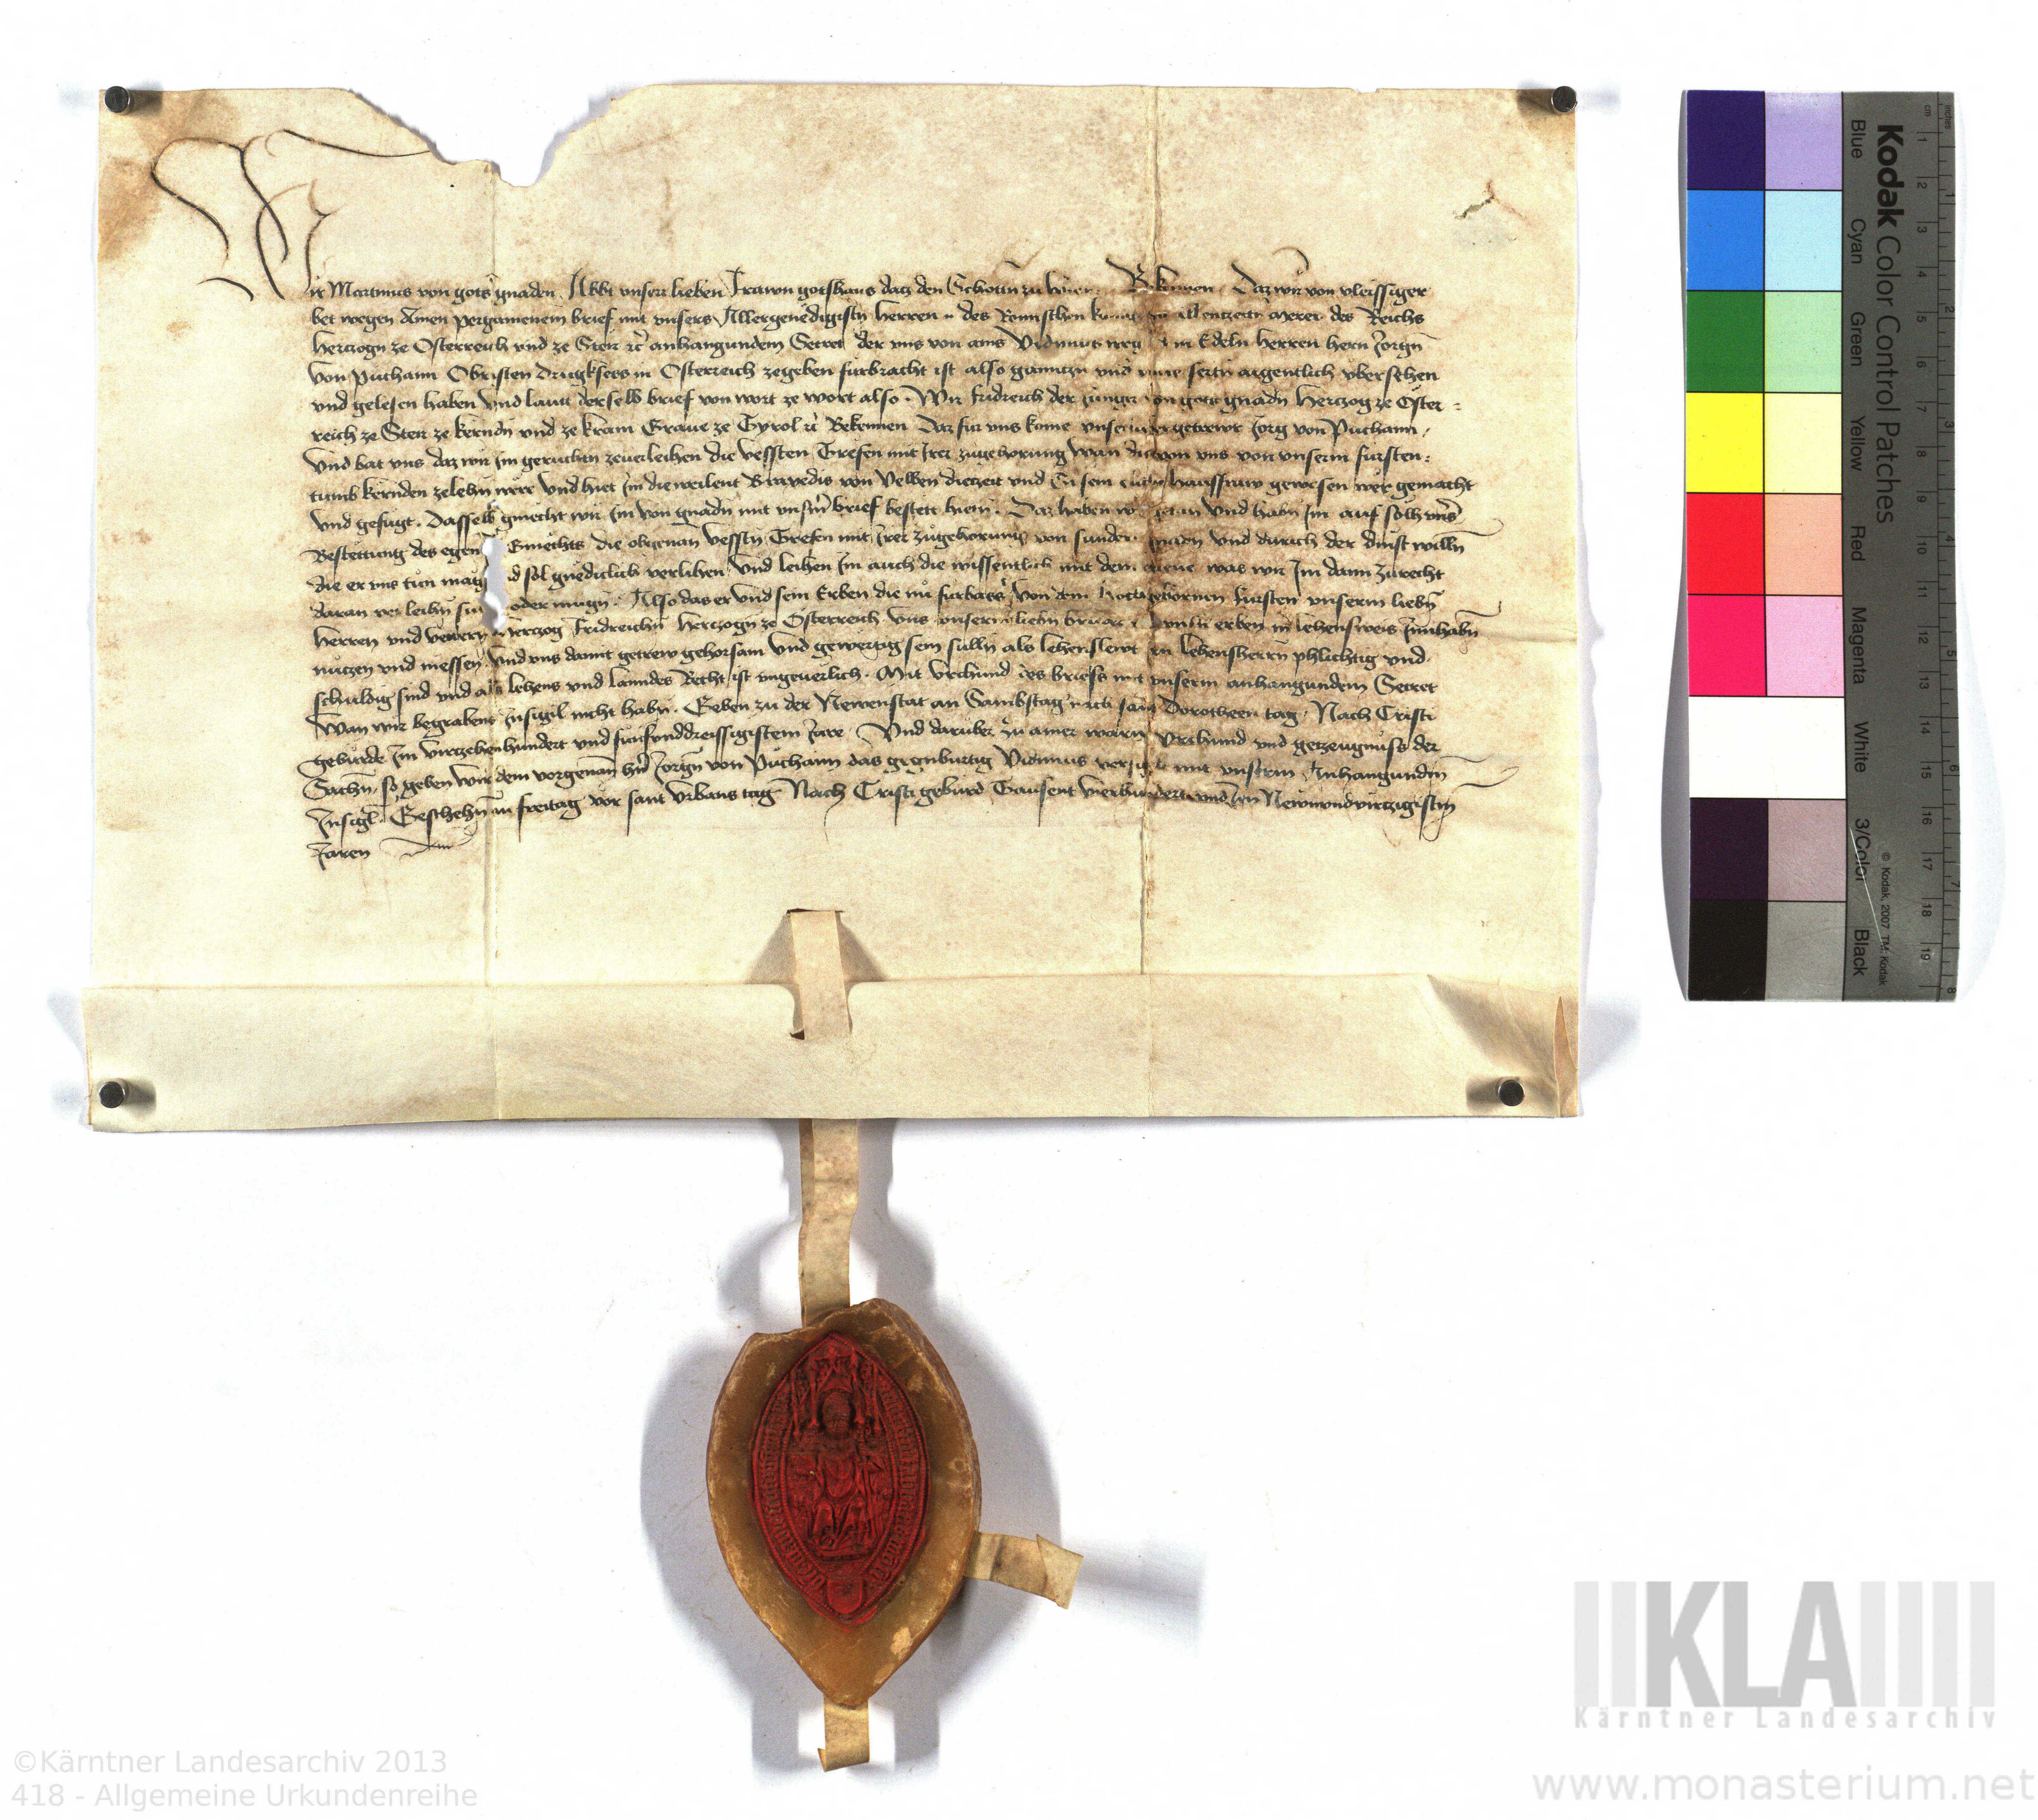 Wir Martinus von gots gnaden Abbt unserr lieben Frawn gotshaus datz den Schotten zu Wienn Bekennen Daz wir von vleissiger
bet wegen Ainen pergamenein brief mit unsers Allergenedigisten Herren des Romischen kunigs zu allenzeiten merer des Reichs
Hertzogn ze Osterreich und ze Steir etc anhangundem Secret der uns von ains Vidimus weg dem Edeln Herren Hern Jorgn
von Puchaim Obristen Drugksecz in Osterreich zegeben furbracht ist also gantzn und unversertn aigentlich ubersehen
und gelesen haben Und lautt derselb brief von wort ze wort also. Wir fridreich der junger von gots gnadn Hertzog ze Oster=
reich ze Steir ze kerndn und ze krain Grave ze Tyrol etc Bekennen Daz fur uns kome unser getrewr Jorg von Puchaim
und bat uns daz wir Im geruchtn zeuerleihen die vessten Gresen mit Irer zugehorung wan die von uns von unserm fursten=
tumb kernden zelehn were und hiet Im die weilent von Velben diezeit und Ee sein hausfraw gewesen wer gemacht
und gefugt. Dasselb gmecht wir Im von gnadn mit unserm brief bestett hietn. Daz haben wir getan und habn Im auf solh unser
Bestettung des egen Gmechts die obgenan vesstn Gresen mit Irer zugehorung von sundern gnaden und durich der dinst willn
die er uns tun mag und sol gnediclich verlihen und leihen Im auch die wissentlich mit dem brieve was wir Im dann zurecht
daran verleihn sulln oder mugn. Also das er und sein Erben die nu furbas von dem Hochgebornen fursten unserm liebn
Herren und vettern Hertzog Fridreichn Hertzogn ze Osterreich uns unserm liebn bruder und unsern erben in lehensweis Innhabn
nutzen und niessen und uns damit getrew gehorsam und gewertig sein sulln als lehenslewt irn lehensherrn phlichtig und
schuldig sind und als lehens und lanndes Recht ist ungeverlich. Mit Urchund des briefs mit unserm anhangundem Secret
Wan wir begrabens Insigil nicht habn. Geben zu der Newenstat an Sambstag nach sant Dorotheen tag Nach Cristi
geburde Im virtzehenhundert und funfunddreissigistem Jare. Und daruber zu ainer warn Urchund und getzeugnuss der
Sachn, so geben wir dem vorgenan hern Jorgn von Puchaim das gegnburtig Vidimus versigelt mit unserm Anhangunden
Insigl. Geschehn an freitag vor sant Urbans tag Nach Cristi geburd Tausent vierhundert und Im Newnundvirtzigistm
Jaren
Kodak Color Control Patches
Blue
Cyan
Green
Yellow
Red
Magenta
White
3/Color
Black
© Kodak, 2007 TM: Kodak
cm 1 2 3 4 5 6 7 8 9 10 11 12 13 14 15 16 17 18 19
inches 1 2 3 4 5 6 7 8
KLA
Kärntner Landesarchiv
©Kärntner Landesarchiv 2013
418 - Allgemeine Urkundenreihe
www.monasterium.net